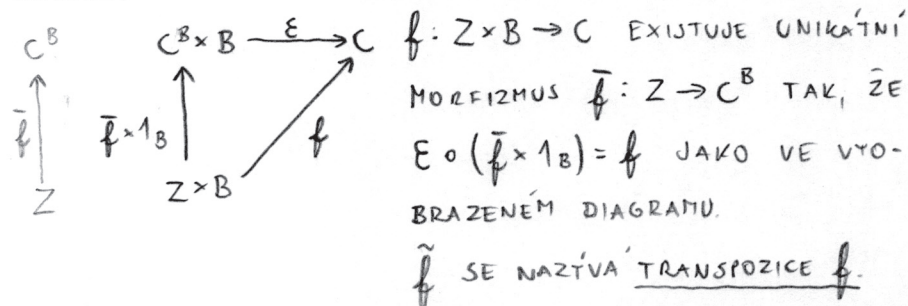 C^B
f̄
Z
C^B × B —ε→ C
f̄ × 1_B
f
Z × B
f : Z × B → C EXISTUJE UNIKÁTNÍ
MORFIZMUS f̄ : Z → C^B TAK, ŽE
ε ∘ (f̄ × 1_B) = f JAKO VE VYO-
BRAZENÉM DIAGRAMU.
f̃ SE NAZÝVÁ TRANSPOZICE f.